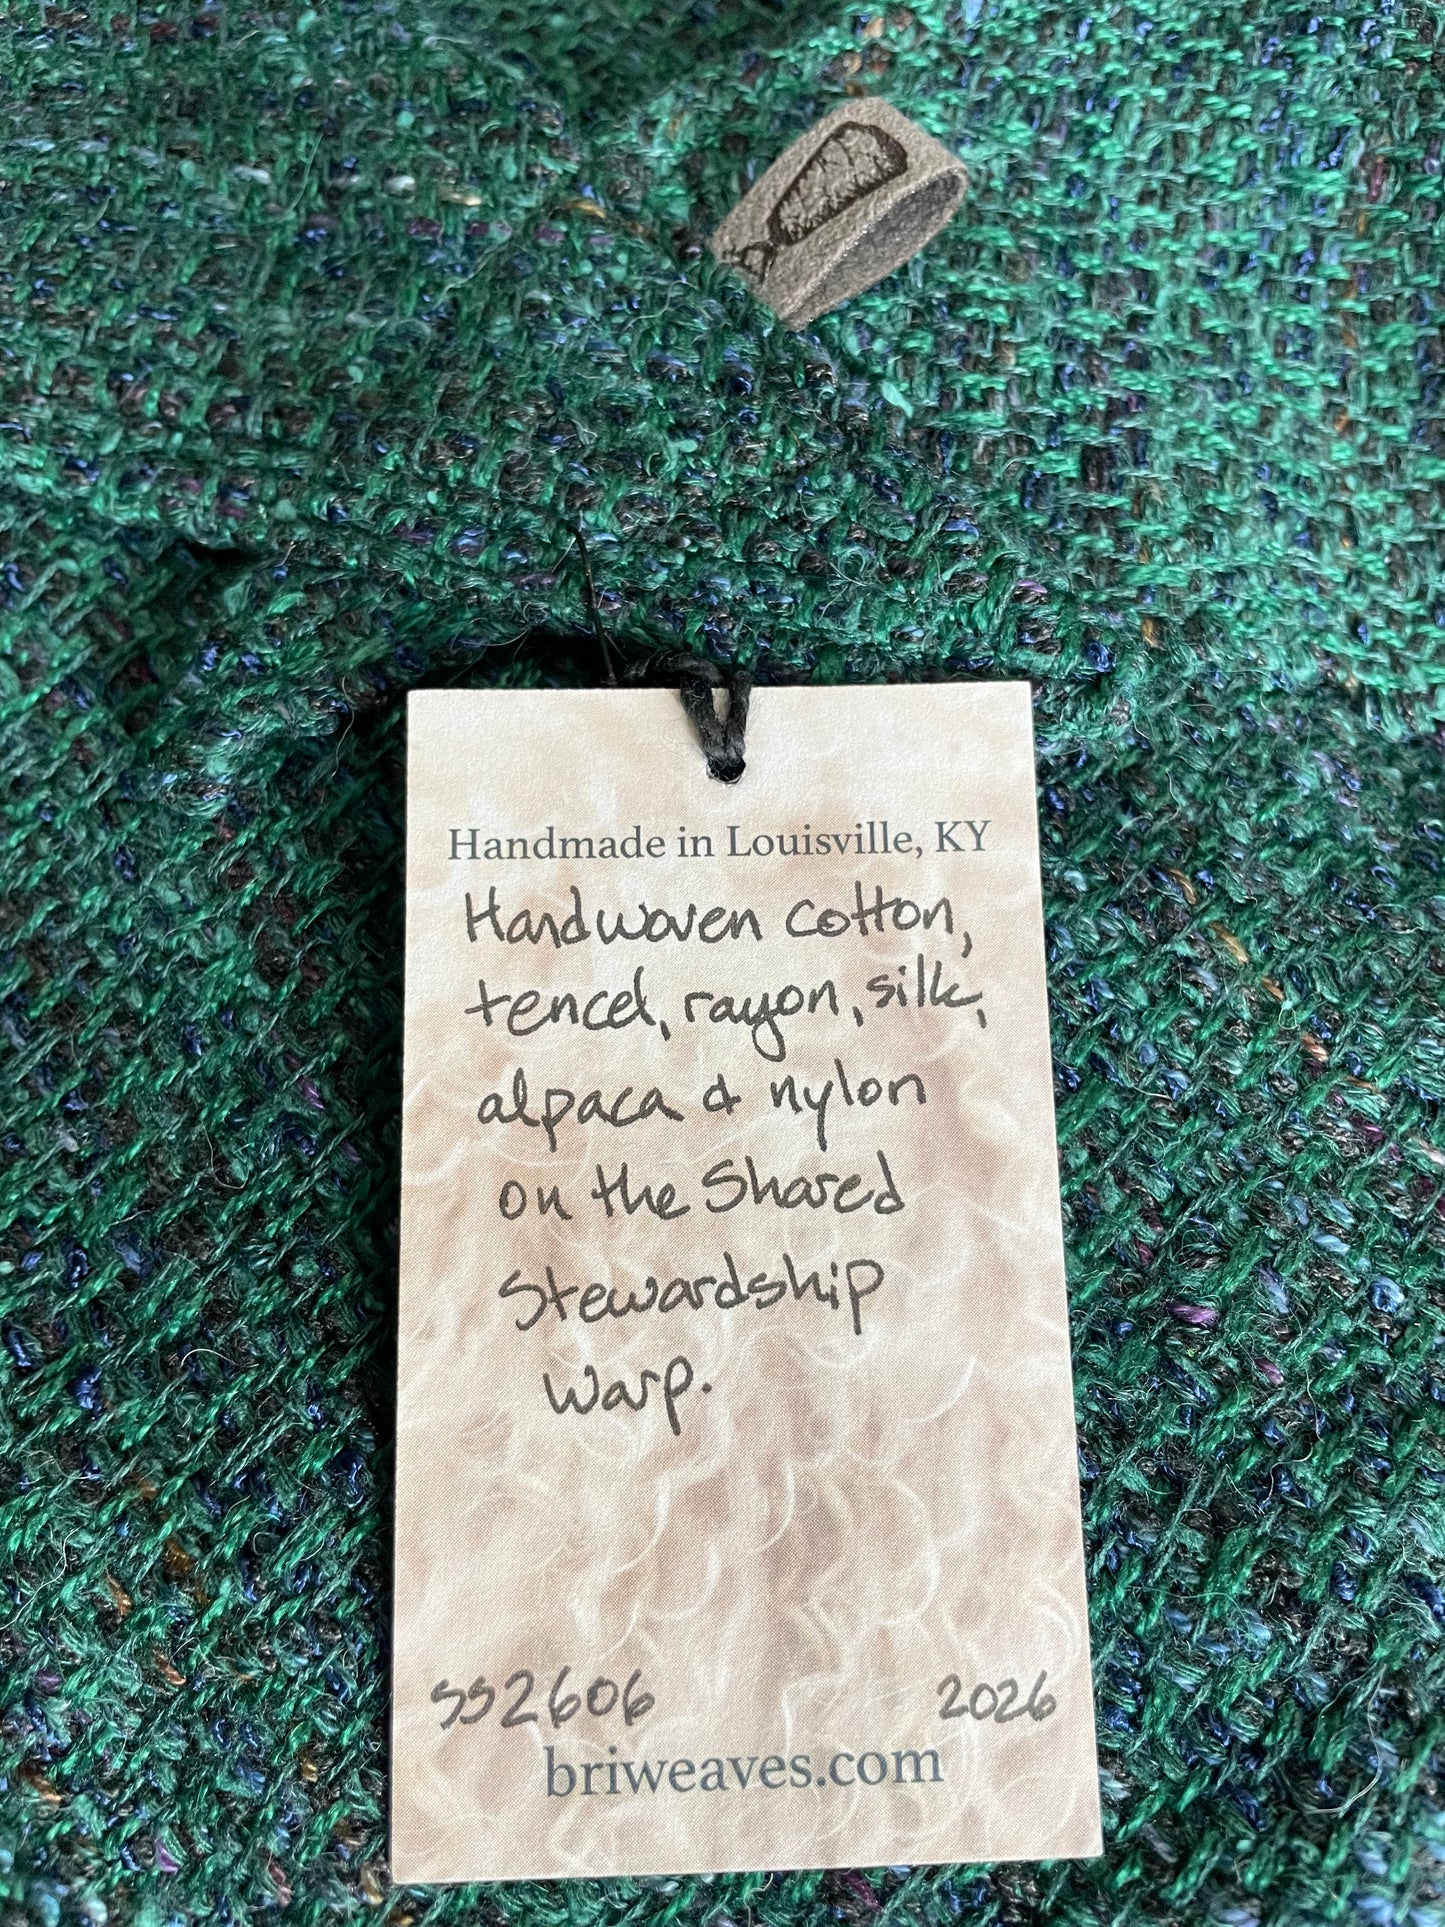 Handmade in Louisville, KY
Handwoven cotton,
tencel, rayon, silk,
alpaca & nylon
on the Shared
Stewardship
warp.
SS2606 2026
briweaves.com